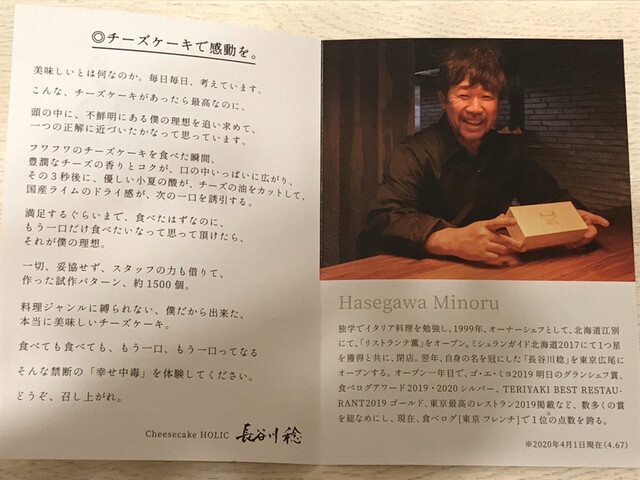 ◎チーズケーキで感動を。
美味しいとは何なのか。毎日毎日、考えています。
こんな、チーズケーキがあったら最高なのに。
頭の中に、不鮮明にある僕の理想を追い求めて、
一つの正解に近づいたかなって思っています。
フワフワのチーズケーキを食べた瞬間、
豊潤なチーズの香りとコクが、口の中いっぱいに広がり、
その3秒後に、優しい小夏の酸が、チーズの油をカットして、
国産ライムのドライ感が、次の一口を誘引する。
満足するぐらいまで、食べたはずなのに、
もう一口だけ食べたいなって思って頂けたら、
それが僕の理想。
一切、妥協せず、スタッフの力も借りて、
作った試作パターン、約1500個。
料理ジャンルに縛られない、僕だから出来た、
本当に美味しいチーズケーキ。
食べても食べても、もう一口、もう一口ってなる
そんな禁断の「幸せ中毒」を体験してください。
どうぞ、召し上がれ。
Cheesecake HOLIC 長谷川稔
Hasegawa Minoru
独学でイタリア料理を勉強し、1999年、オーナーシェフとして、北海道江別
にて、「リストランテ薫」をオープン。ミシュランガイド北海道2017にて1つ星
を獲得と共に、閉店。翌年、自身の名を冠にした「長谷川稔」を東京広尾に
オープンする。オープン一年目で、ゴ・エ・ミヨ2019 明日のグランシェフ賞、
食べログアワード2019・2020 シルバー、TERIYAKI BEST RESTAU-
RANT2019 ゴールド、東京最高のレストラン2019掲載など、数多くの賞
を総なめにし、現在、食べログ[東京 フレンチ]で1位の点数を誇る。
※2020年4月1日現在(4.67)